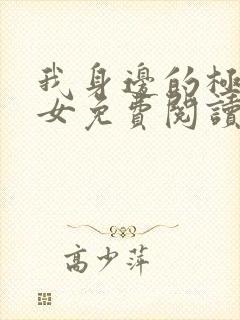 我身邊的極
女免費閱讀
高少萍